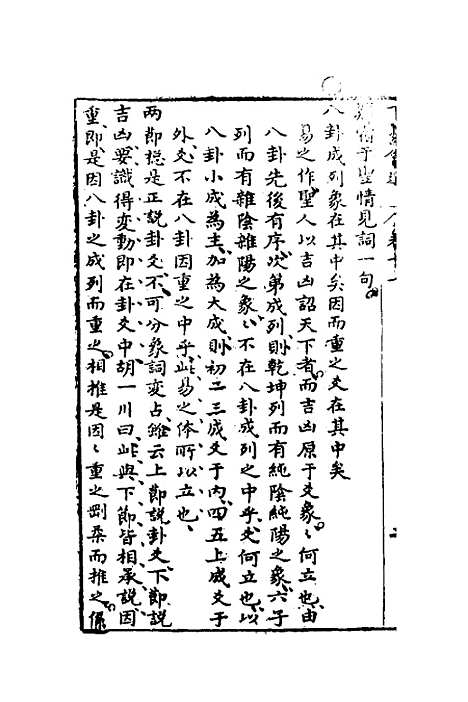 于聖情見詞一句
八卦成列象在其中矣因而重之爻在其中矣
易之作聖人以吉凶詔天下者而吉凶原于爻象〻何立也由
八卦先後有序次第成列則乾坤列而有純陰純陽之象六子
列而有雜陰雜陽之象〻不在八卦成列之中乎爻何立也以
八卦小成為主加為大成則初二三成爻于内四五上成爻于
外爻不在八卦因重之中乎此易之体所以立也
兩節總是正説卦爻不可分象詞変占雖云上節説卦爻下節説
吉凶要識得変動即在卦爻中胡一川曰此與下節皆相承説因
重即是因八卦之成列而重之相推是因〻重之剛柔而推之係